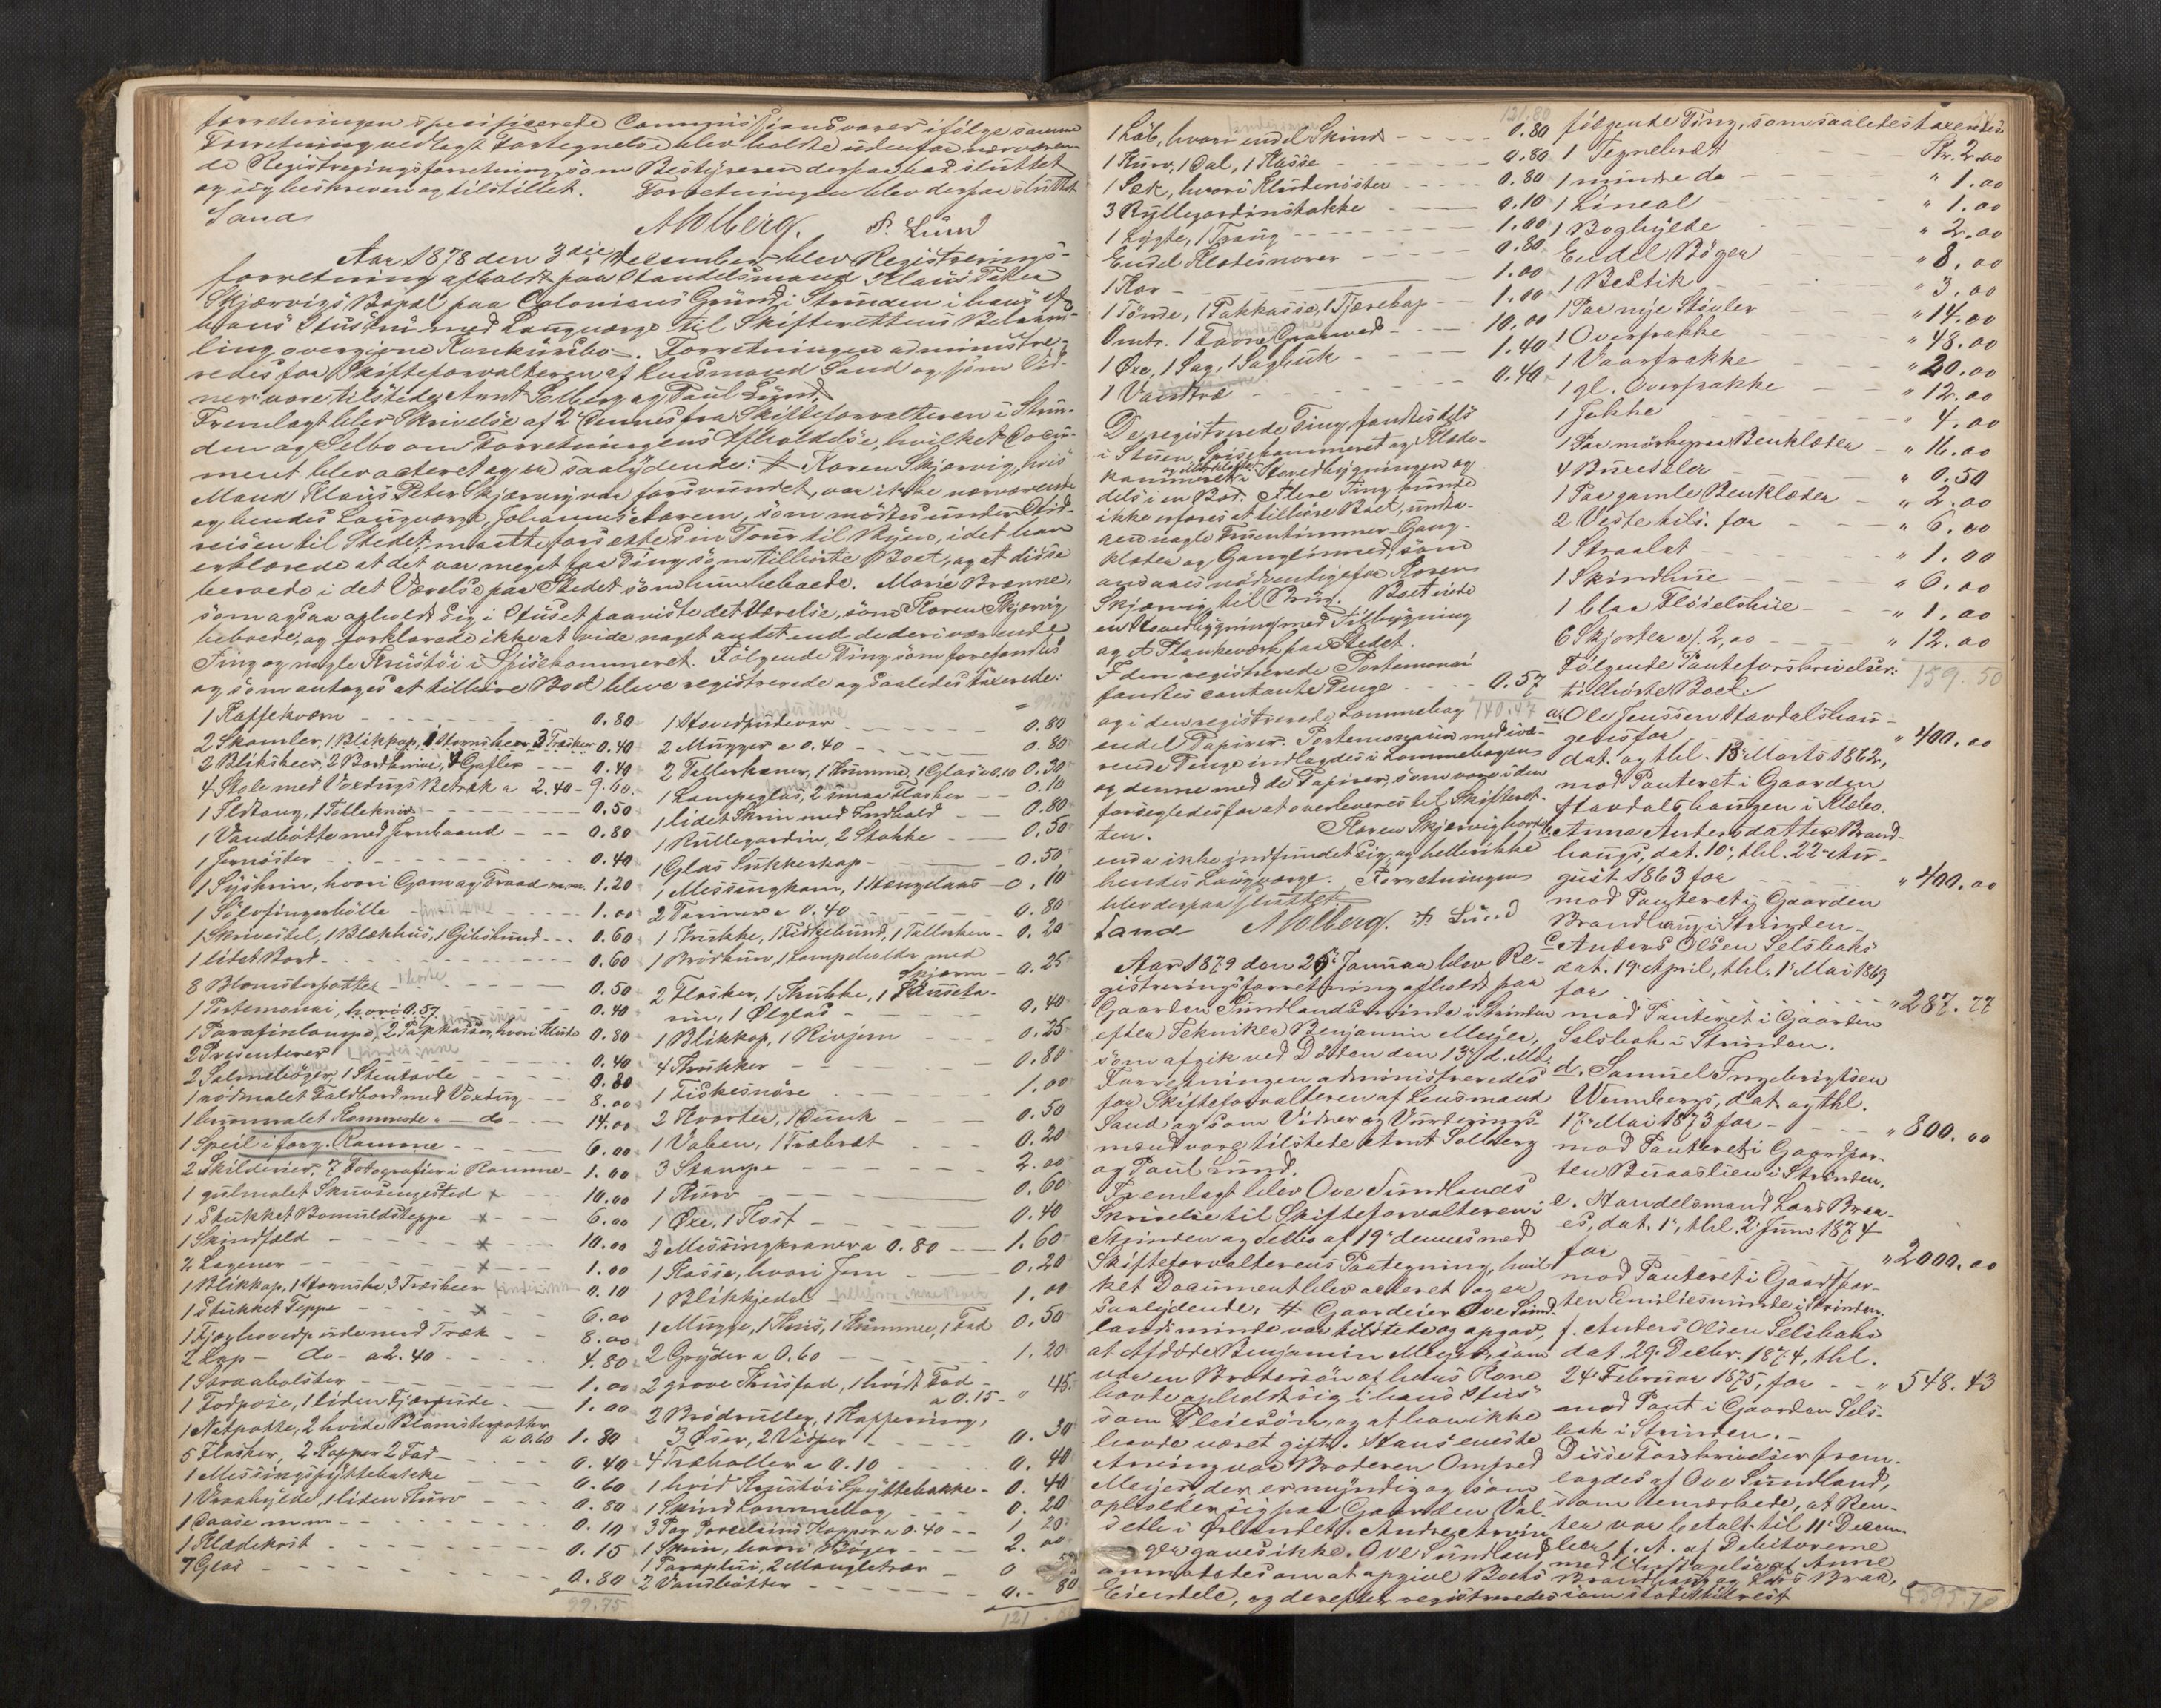 forretningen specificerede Commissionsvarer ifølge samme
Forretning vedlagt Fortegnelse blev holdte udenfor nærværen-
de Registreringsforretning, som Bestyreren derpaa lod sluttet
og sig beskreven og tilstillet. Forretningen blev derpaa sluttet
Sand ASolberg. P. Lund
Aar 1878 den 3die December blev Registrerings-
forretning afholdt paa Handelsmand Klaus Peter
Skjærvigs Bopæl paa Coloniens Grund i Strinden i hans af
hans Hustru med Laugværge til Skifterettens Behand-
ling overgivne Konkursbo. Forretningen administre-
redes for Skifteforvalteren af Lensmand Sand og som Vid-
ner vare tilstede Arnt Solberg og Paul Lund.
Fremlagt blev Skrivelse af 2 dennes fra Skifteforvalteren i Strin-
den og Selbo om Forretningens Afholdelse, hvilket Docu-
ment blev acteret og er saalydende: # Karen Skjærvig, hvis
Mand Klaus Peter Skjærvig var forsvundet, var ikke nærværende
og hendes Laugværge, Johannes Aarem, som mødtes under Hid-
reisen til Stedet, maatte forsætte sin Tour til Byen, idet han
erklærede at det var meget faa Ting som tilhørte Boet, og at disse
beroede i det Værelse paa Stedet som hun beboede. Marie Brønne,
som ogsaa opholdt sig i Huset paaviste det Værelse, som Karen Skjærvig
beboede, og forklarede ikke at vide noget andet end de deri værende
Ting og nogle Krustøi i Spisekammeret. Følgende Ting som forefandtes
og som antoges at tilhøre Boet bleve registrerede og saaledes taxerede:
1 Kaffekværn 0.80
2 Skamler, 1 Blikkop, 1 Hornskeer, 3 Træskeer 0.40
2 Blikskeer, 2 Bordknive, 4 Gafler 0.40
4 Stole med Voxdugs Betræk a 2.40 - 9.60
1 Ildtang, 1 Tællekniv 0.50
1 Vandbøtte med Jernbaand 0.80
1 Jernøster 0.40
1 Syskrin, hvori Garn og Traad m.m. 1.20
1 Sølvfingerbølle 1.00
1 Skrivestel, 1 Blækhus, 1 Gibshund 0.60
1 lidet Bord 0.60
8 Blomsterpotter 0.50
1 Portemonai, hvori 0.57 0.40
1 Parafinlampe, 2 Papkasser, hvori Klude 0.80
2 Presenterer 0.40
2 Salmebøger, 1 Stentavle 0.80
1 rødmalet Faldbord med Voxdug 8.00
1 brunmalet Kommode " do 14.00
1 Speil i forg. Ramme 6.00
2 Skilderier, 7 Fotografier i Ramme 1.00
1 gulmalet Skuvsengested x 10.00
1 stukket Bomuldsteppe x 6.00
1 Skindfæld x 10.00
2 Lagener x 1.00
1 Blikkop, 1 Hornske, 3 Træskeer 0.10
1 stukket Teppe x 6.00
1 Fjærhovedpude med Træk 8.00
2 Lap- do- a 2.40 4.80
1 Straabolster 1.00
1 Fodpose, 1 liden Fjærpude 1.00
1 Natpotte, 2 hvide Blomsterpotter a 0.60 1.80
5 Flasker, 2 Kopper 2 Fad 0.40
1 Messingspyttebakke 0.60
1 Vraahylde, 1 liden Kurv 0.80
1 Daase m.m. 0.10
1 Klædekost 0.15
7 Glas 0.80
99.75
99.75
1 Hovedpudevar 0.80
2 Mugger a 0.40 0.80
2 Tallerkener, 1 Kumme, 1 Glas a 0.10 0.30
1 Lampeglas, 2 smaa Flasker 0.10
1 lidet Skrin med Indhold 0.80
1 Rullegardin, 2 Stokke 0.50
1 Glas Sukkerkop 0.50
1 Messingkam, 1 Hængelaas 0.10
2 Tariner a 0.40 0.80
1 Krukke, 1 Fiskebund, 1 Tallerken 0.20
1 Brødkurv, 1 Lampeholder med
Skjærm 0.25
2 Flasker, 1 Krukke, 1 Sauseta-
rin, 1 Ølglas 0.40
1 Blikkop, 1 Rivjern 0.25
4 Krukker 0.80
1 Fiskesnøre 1.00
2 Kvarter, 1 Dunk 0.50
1 Vaben, 1 Træbræt 0.20
3 Stampe 2.00
1 Kurv 0.60
1 Øxe, 1 Kost 0.40
2 Messingkraner a 0.80 1.60
1 Kasse, hvori Jern 0.20
1 Blikkjedel 1.00
1 Mugge, 1 Krus, 1 Kumme, 1 Fad 0.50
2 Gryder a 0.60 1.20
2 grove Krusfad, 1 hvidt Fad
a 0.15 " 45
2 Brødruller, 1 Kaffering,
3 Øser, 2 Visper 0.30
4 Træboller a 0.10 0.40
1 hvid Krustøi Spyttebakke 0.40
1 Skind Lommebog 0.20
3 Par Porcelains Kopper a 0.40 1 20
1 Skrin, hvori Bøger 2.00
1 Paraplui, 2 Mangletrær 0
2 Vandbøtter 0.80
121.80
121.80
1 Løb, hvori endel Skind 0.80
1 Kurv, 1 Dal, 1 Kasse 0.80
1 Sæk, hvori Kludenøster 0.80
3 Rullegardinstokke 0.10
1 Lygte, 1 Traug 1.00
Endel Klædesnorer 0.80
1 Kar 1.00
1 Tønde, 1 Pakkasse, 1 Tjærekop 1.00
Omtr. 1 Favne Granved 10.00
1 Øxe, 1 Sag, 1 Sagbuk 1.40
1 Vandtræ 0.40
De registrerede Ting fandtes dels
i Stuen, Spisekammeret og Klæde-
kammeret i Hovedbygningen og
dels i en Bod. Flere Ting kunde
ikke erfares at tilhøre Boet, undta-
gen nogle Fruentimmer Gang-
klæder og Ganglinned, som
ansaaes nødvendige for Karen
Skjærvig til Brug. Boet eiede
en Hovedbygning med Tilbygning
og et Plankeværk paa Stedet.
I den registrerede Portemonai
fandtes contante Penge 0.57
og i den registrerede Lommebog 140.47
endel Papirer. Portemonaien med væ-
rende Penge indlagdes i Lommebogen
og denne med de Papirer, som vare i den
forsegledes for at overleveres til Skifteret-
ten. Karen Skjærvig havde
enda ikke indfundet sig, og hellerikke
hendes Laugværge. Forretningen
blev derpaa sluttet
Sand ASolberg. P. Lund
Aar 1879 den 25 Januar blev Re-
gistreringsforretning afholdt paa
Gaarden Sundlandsminde i Strinden
efter Tekniker Benjamin Meyer,
som afgik ved Døden den 13 d. Md.
Forretningen administreredes
for Skifteforvalteren af Lensmand
Sand og som Vidner og Vurderings-
mænd vare tilstede Arnt Solberg
og Paul Lund.
Fremlagt blev Ove Sundlands
Skrivelse til Skifteforvalteren i
Strinden og Selbo af 19 dennes med
Skifteforvalterens Paategning, hvil-
ket Document blev acteret og er
saalydende, # Gaardeier Ove Sund-
landsminde var tilstede og opgav,
at Afdøde Benjamin Meyer, som
var en Brodersøn af hans Kone
havde opholdt sig i hans Huus
som Pleiesøn, og at han ikke
havde været gift. Hans eneste
Arving var Broderen Omfred
Meyer, der er myndig og som
opholder sig paa Gaarden Val-
seth i Ørlandet. Andre Arvin-
ger gaves ikke. Ove Sundland
anmodedes om at opgive Boets
Eiendele, og derefter registreredes
følgende Ting, som saaledes taxeredes
1 Tegnebræt Kr. 2.00
1 mindre do " 1.00
1 Lineal " 1.00
1 Boghylde " 2.00
Endel Bøger " 8.00
1 Bestik " 3.00
1 Par nye Støvler " 14.00
1 Overfrakke " 48.00
1 Vaarfrakke " 20.00
1 gl. Overfrakke " 12.00
1 Jakke " 4.00
1 Par mørkegraa Benklæder " 16.00
4 Buxeseler " 0.50
1 Par gamle Benklæder " 2.00
2 Veste tils. for " 6.00
1 Straahat " 1.00
1 Skindhue " 6.00
1 blaa Fløielshue " 1.00
6 Skjorter a 2,00 " 12.00
Følgende Panteforskrivelser: 159.50
tilhørte Boet:
a, Ole Jenssen Havdalshau-
genes for " 400.00
dat. og thl. 13 Marts 1862,
mod Panteret i Gaarden
Havdalshaugen i Klæbo.
b, Anna Andersdatter Brand-
haugs, dat. 10, thl. 22 Au-
gust 1863 for " 400.00
mod Panteret i Gaarden
Brandhaug i Strinden
c, Anders Olsen Selsbaks
dat. 19 April, thl. 1 Mai 1869
for " 287.77
mod Panteret i Gaarden
Selsbak i Strinden.
d. Samuel Ingebrigtsen
Wennbergs, dat. og thl.
17 Mai 1873 for " 800.00
mod Panteret i Gaardpar-
ten Buraaslien i Strinden.
e. Handelsmand Lars Braa-
es, dat. 1, thl. 2 Juni 1874
for " 2000.00
mod Panteret i Gaardpar-
ten Emiliesminde i Strinden.
f. Anders Olsen Selsbaks
dat. 29 Decbr. 1874, thl.
24 Februar 1875, for " 548.43
mod Pant i Gaarden Sels-
bak i Strinden.
Disse Forskrivelser frem-
lagdes af Ove Sundland,
som bemærkede, at Ren-
ter var betalt til 11 Decem-
ber f. A. af Debitorerne
med Undtagelse af Anne
Brandhaug og Lars Braa,
som stodet til rest
4595.70